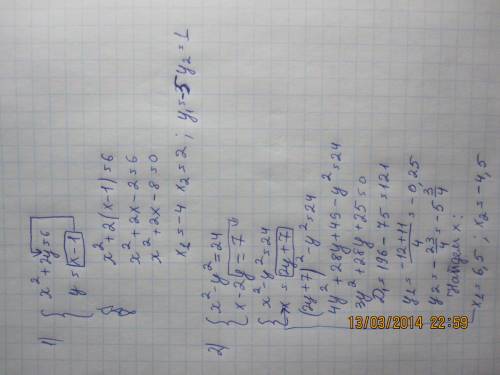 1) { x² + 2y = 6
y = x-1
x² + 2(x-1) = 6
x² + 2x - 2 = 6
x² + 2x - 8 = 0
x₁ = -4 x₂ = 2 ; y₁ = -5 y₂ = 1
2) { x² - y² = 24
x - 2y = 7
{ x² - y² = 24
x = 2y + 7
(2y+7)² - y² = 24
4y² + 28y + 49 - y² = 24
3y² + 28y + 25 = 0
D₁ = 196 - 75 = 121
y₁ = -12+11/4 = -0,25
y₂ = -23/4 = -5 3/4
Найдем x:
x₁ = 6,5 ; x₂ = -4,5
13/03/2014 22:59